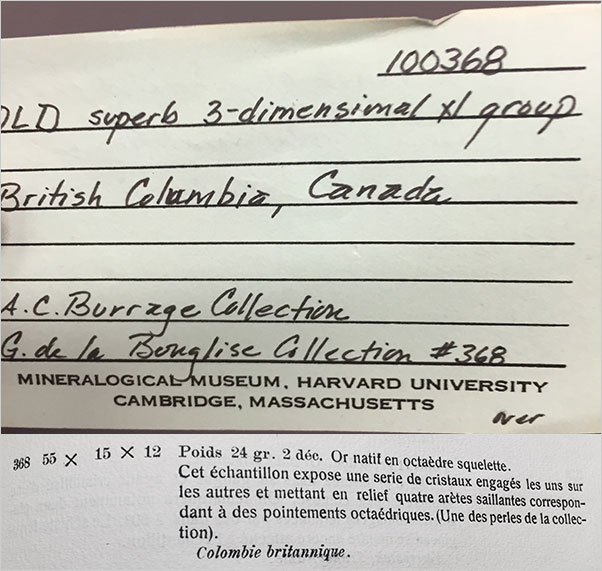 100368
OLD superb 3-dimensional xl group
British Columbia, Canada
A.C. Burrage Collection
G. de la Bouglise Collection #368
MINERALOGICAL MUSEUM, HARVARD UNIVERSITY
CAMBRIDGE, MASSACHUSETTS
over
368 55 × 15 × 12 Poids 24 gr. 2 déc. Or natif en octaèdre squelette.
Cet échantillon expose une serie de cristaux engagés les uns sur
les autres et mettant en relief quatre arètes saillantes correspon-
dant à des pointements octaédriques. (Une des perles de la collec-
tion).
Colombie britannique.